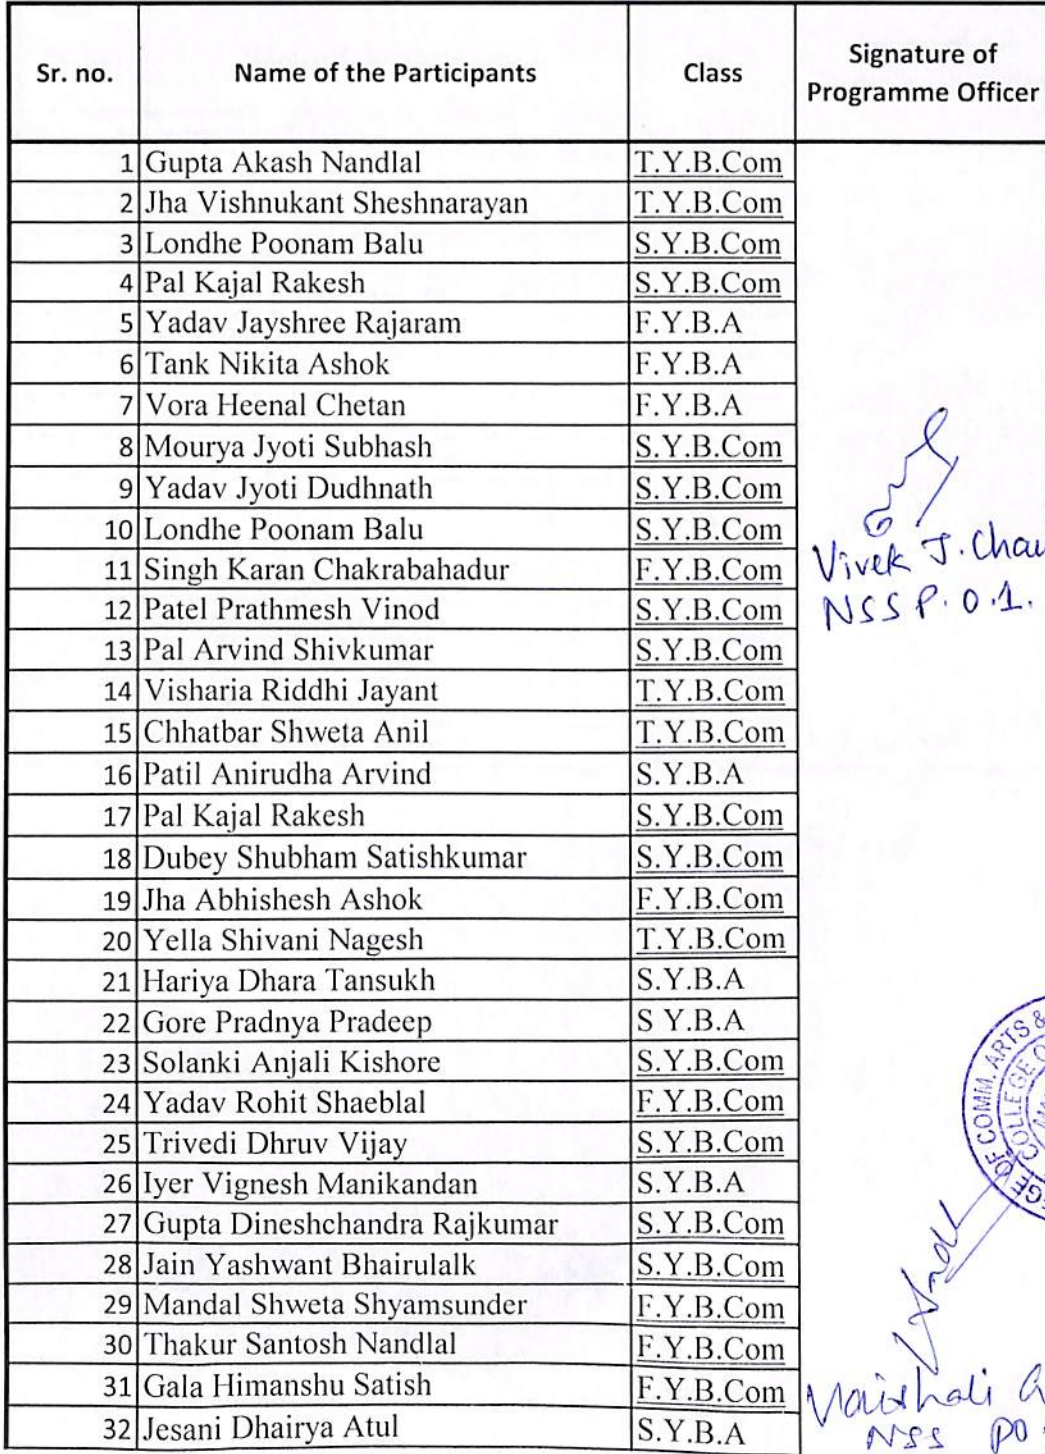 Sr. no. Name of the Participants Class Signature of Programme Officer
1 Gupta Akash Nandlal T.Y.B.Com
2 Jha Vishnukant Sheshnarayan T.Y.B.Com
3 Londhe Poonam Balu S.Y.B.Com
4 Pal Kajal Rakesh S.Y.B.Com
5 Yadav Jayshree Rajaram F.Y.B.A
6 Tank Nikita Ashok F.Y.B.A
7 Vora Heenal Chetan F.Y.B.A
8 Mourya Jyoti Subhash S.Y.B.Com
9 Yadav Jyoti Dudhnath S.Y.B.Com
10 Londhe Poonam Balu S.Y.B.Com
11 Singh Karan Chakrabahadur F.Y.B.Com
Vivek J. Chau
12 Patel Prathmesh Vinod S.Y.B.Com
NSS P.O.1.
13 Pal Arvind Shivkumar S.Y.B.Com
14 Visharia Riddhi Jayant T.Y.B.Com
15 Chhatbar Shweta Anil T.Y.B.Com
16 Patil Anirudha Arvind S.Y.B.A
17 Pal Kajal Rakesh S.Y.B.Com
18 Dubey Shubham Satishkumar S.Y.B.Com
19 Jha Abhishesh Ashok F.Y.B.Com
20 Yella Shivani Nagesh T.Y.B.Com
21 Hariya Dhara Tansukh S.Y.B.A
22 Gore Pradnya Pradeep S Y.B.A
23 Solanki Anjali Kishore S.Y.B.Com
24 Yadav Rohit Shaeblal F.Y.B.Com
OF COMM. ARTS &
COLLEGE
25 Trivedi Dhruv Vijay S.Y.B.Com
26 Iyer Vignesh Manikandan S.Y.B.A
27 Gupta Dineshchandra Rajkumar S.Y.B.Com
28 Jain Yashwant Bhairulalk S.Y.B.Com
29 Mandal Shweta Shyamsunder F.Y.B.Com
30 Thakur Santosh Nandlal F.Y.B.Com
31 Gala Himanshu Satish F.Y.B.Com
Vaishali
32 Jesani Dhairya Atul S.Y.B.A
NSS PO